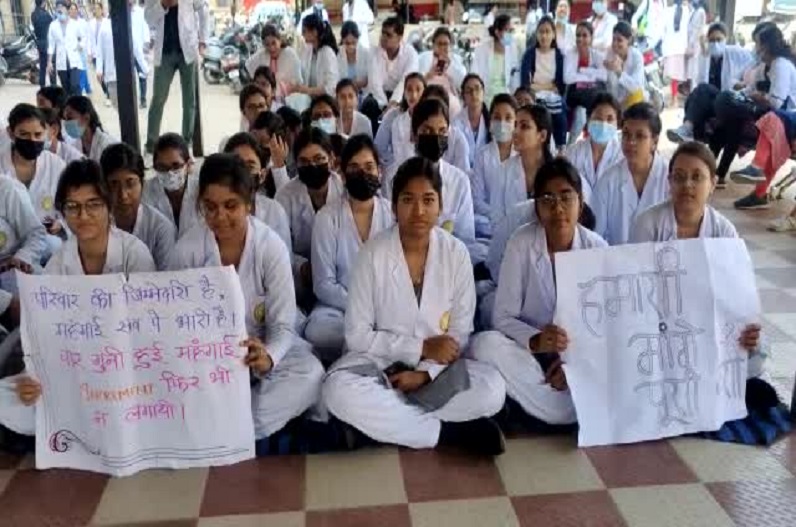 परिवार की जिम्मेदारी है,
महँगाई सब पे भारी है।
चार गुनी हुई महँगाई
फिर भी
न लगायी।
हमारी
माँगे
पूरी